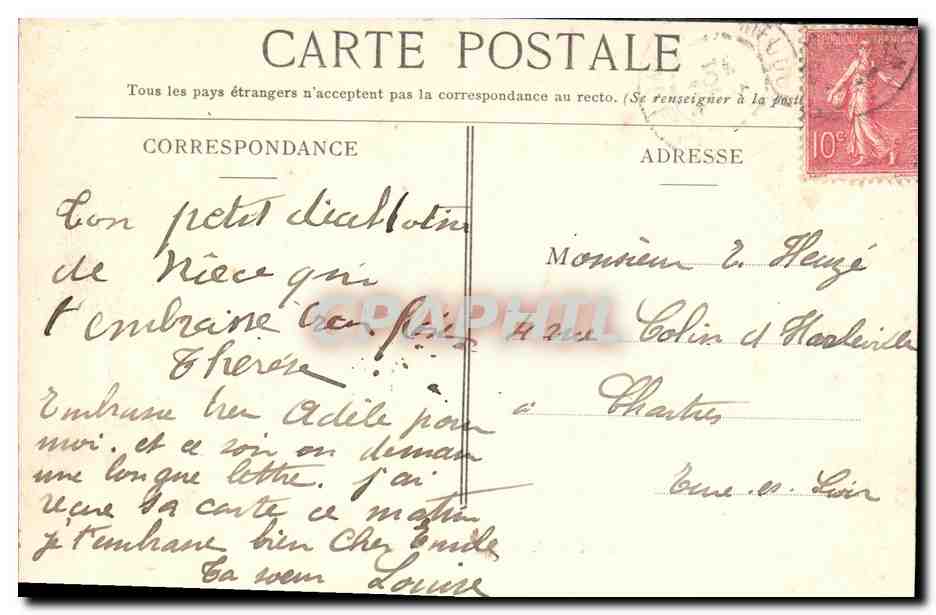 CARTE POSTALE
Tous les pays étrangers n'acceptent pas la correspondance au recto. (Se renseigner à la poste
RÉPUBLIQUE FRANÇAISE
10c
CORRESPONDANCE
Ton petit
de Nièce qui
t'embrasse bien fort
Thérèse
Embrasse bien Adèle pour
moi. et ce soir ou demain
une longue lettre. j'ai
reçue sa carte ce matin
je t'embrasse bien Cher Emile
Ta soeur Louise
ADRESSE
Monsieur E. Heuzé
4 rue Colin d'Harleville
à Chartres
Eure-et-Loir
CPAPHIL